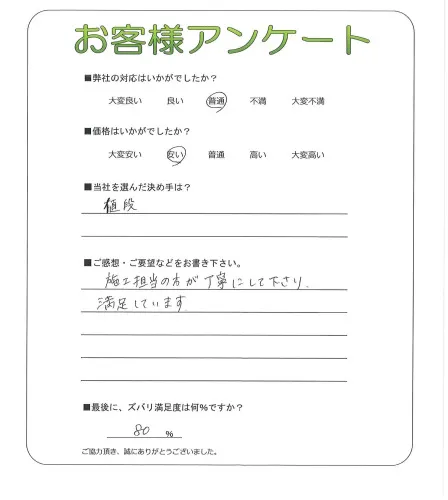 お客様アンケート
■弊社の対応はいかがでしたか?
大変良い 良い 普通 不満 大変不満
■価格はいかがでしたか?
大変安い 安い 普通 高い 大変高い
■当社を選んだ決め手は?
値段
■ご感想・ご要望などをお書き下さい。
施工担当の方が丁寧にして下さり、
満足しています
■最後に、ズバリ満足度は何%ですか?
80 %
ご協力頂き、誠にありがとうございました。